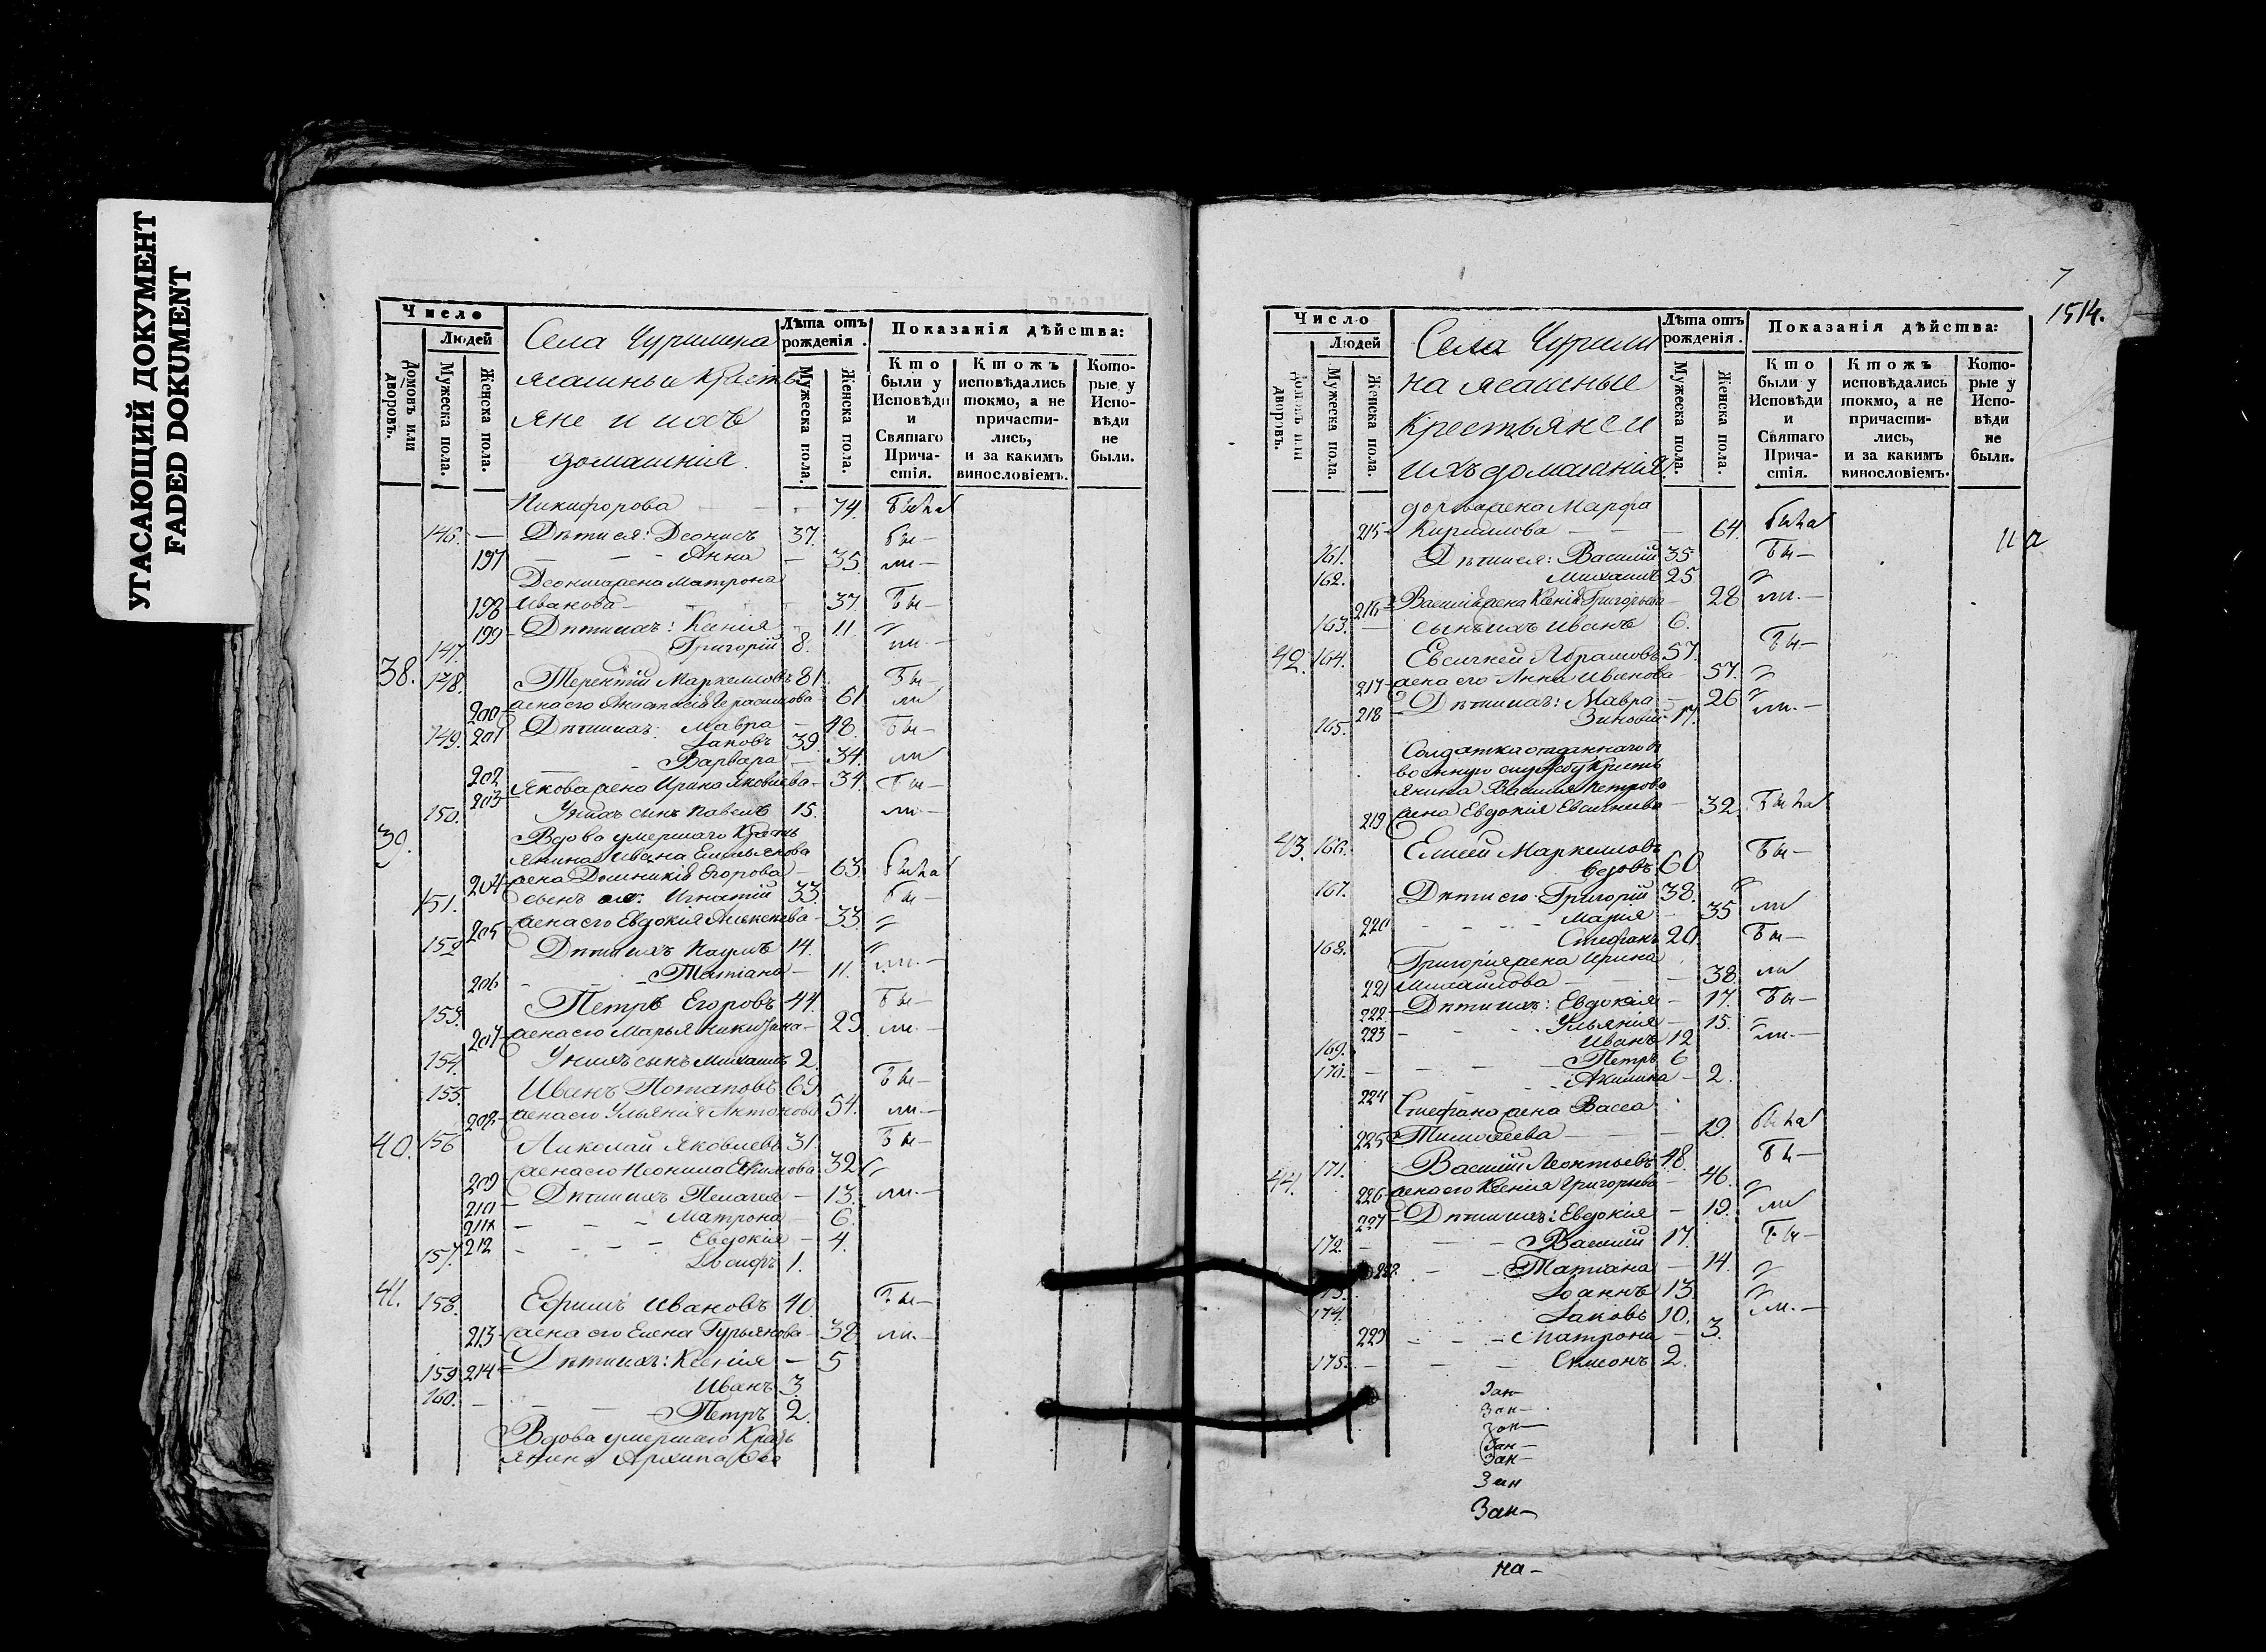 УГАСАЮЩИЙ ДОКУМЕНТ
FADED DOKUMENT
Число
Людей
Домовъ или дворовъ.
Мужеска пола.
Женска пола.
Села Чуршина
ясашныи Кресть
яне и ихъ
домашнія.
Лѣта отъ рожденія.
Мужеска пола.
Женска пола.
Показанія дѣйства:
Кто были у Исповѣди и Святаго Причастія.
Ктожъ исповѣдались токмо, а не причастились, и за какимъ винословіемъ.
Которые у Исповѣди не были.
Никифорова — 74. была
146. — Дѣти ея: Деонисъ 37. бы—
197 — Анна — 35. ли—
Деониса жена Матрона
198 Иванова — 37. бы—
199 Дѣти ихъ: Ксенія — 11. „
147. Григорій 8. ли.—
38. 148. Терентій Маркелловъ 81. бы—
200 жена его Анастасія Герасимова 61 ли
201 Дѣти ихъ: Мавра — 48. бы—
149. Іаковъ 39.
202 — Варвара — 34. ли
203 Якова жена Ирина Яковлева — 34. бы—
150. У нихъ сынъ Павелъ 15. ли—
39. Вдова умершаго Кресть
янина Ивана Емельянова
204 жена Домникія Егорова — 63. была
151. сынъ ея: Игнатій 33. бы—
205 жена его Евдокія Алексеева — 33. „
152 Дѣти ихъ Наумъ 14. „
206 — Татіана — 11. ли.—
153. Петръ Егоровъ 44. бы—
207 жена его Марья Никитина — 29. ли.—
154. У нихъ сынъ Михаилъ 2.
155. Иванъ Потаповъ 69 бы—
208 жена его Ульянія Антонова 54. ли—
40. 156 Николай Яковлевъ 31. бы—
209 жена его Неонила Ефимова 32 „
210 Дѣти ихъ Пелагея — 13. ли.—
211 — Матрона — 6.
212 — Евдокія — 4.
157. Іосифъ 1.
41. 158. Ефимъ Ивановъ 40. бы—
213 жена его Елена Гурьянова — 38. ли.—
214 Дѣти ихъ: Ксенія — 5
159 Иванъ 3.
160. — Петръ 2.
Вдова умершаго Кресть
янина Архипа Ѳео
7
1514.
Число
Людей
Домовъ или дворовъ.
Мужеска пола.
Женска пола.
Села Чурши
на ясашные
Крестьяне и
ихъ домашнія.
Лѣта отъ рожденія.
Мужеска пола.
Женска пола.
Показанія дѣйства:
Кто были у Исповѣди и Святаго Причастія.
Ктожъ исповѣдались токмо, а не причастились, и за какимъ винословіемъ.
Которые у Исповѣди не были.
дорова жена Марфа
215 Кириллова — 64. была
161. Дѣти ея: Василій 35 бы—
162. Михаилъ 25 „
216 Василья жена Ксенія Григорьева — 28 ли.—
163. — сынъ ихъ Иванъ 6.
42. 164. Евсигней Абрамовъ 57. бы—
217 жена его Анна Иванова — 57. „
218 Дѣти ихъ: Мавра — 26 „
165. Зиновій 17. ли.—
Солдатка отданнаго въ
военную службу Кресть
янина Василья Петрова
219 жена Евдокія Евсигнеева — 32. была
43. 166. Елисей Маркелловъ
вдовъ 60 бы—
167. Дѣти его Григорій 38. „
220 — Марія — 35 ли
168. Стефанъ 20. бы—
Григорія жена Ирина
221 Михайлова — 38 ли
222 Дѣти ихъ: Евдокія — 17. бы—
223 — Ульянія — 15. „
169. Иванъ 12 ли.—
170. — Петръ 6
224 — Акилина — 2.
Стефана жена Васса
225 Тимофеева — 19. была
44. 171. Василій Леонтьевъ 48. бы—
226 жена его Ксенія Григорьева — 46. „
227 Дѣти ихъ: Евдокія — 19. ли
172. — Василій 17. бы—
228. — Татіана — 14. „
173. Іоаннъ 13. „
174. Іаковъ 10. ли.—
229 — Матрона — 3.
175. — Симонъ 2.
Зан—
Зан—
Зан—
Зан—
Зан—
Зан
Зан—
на—